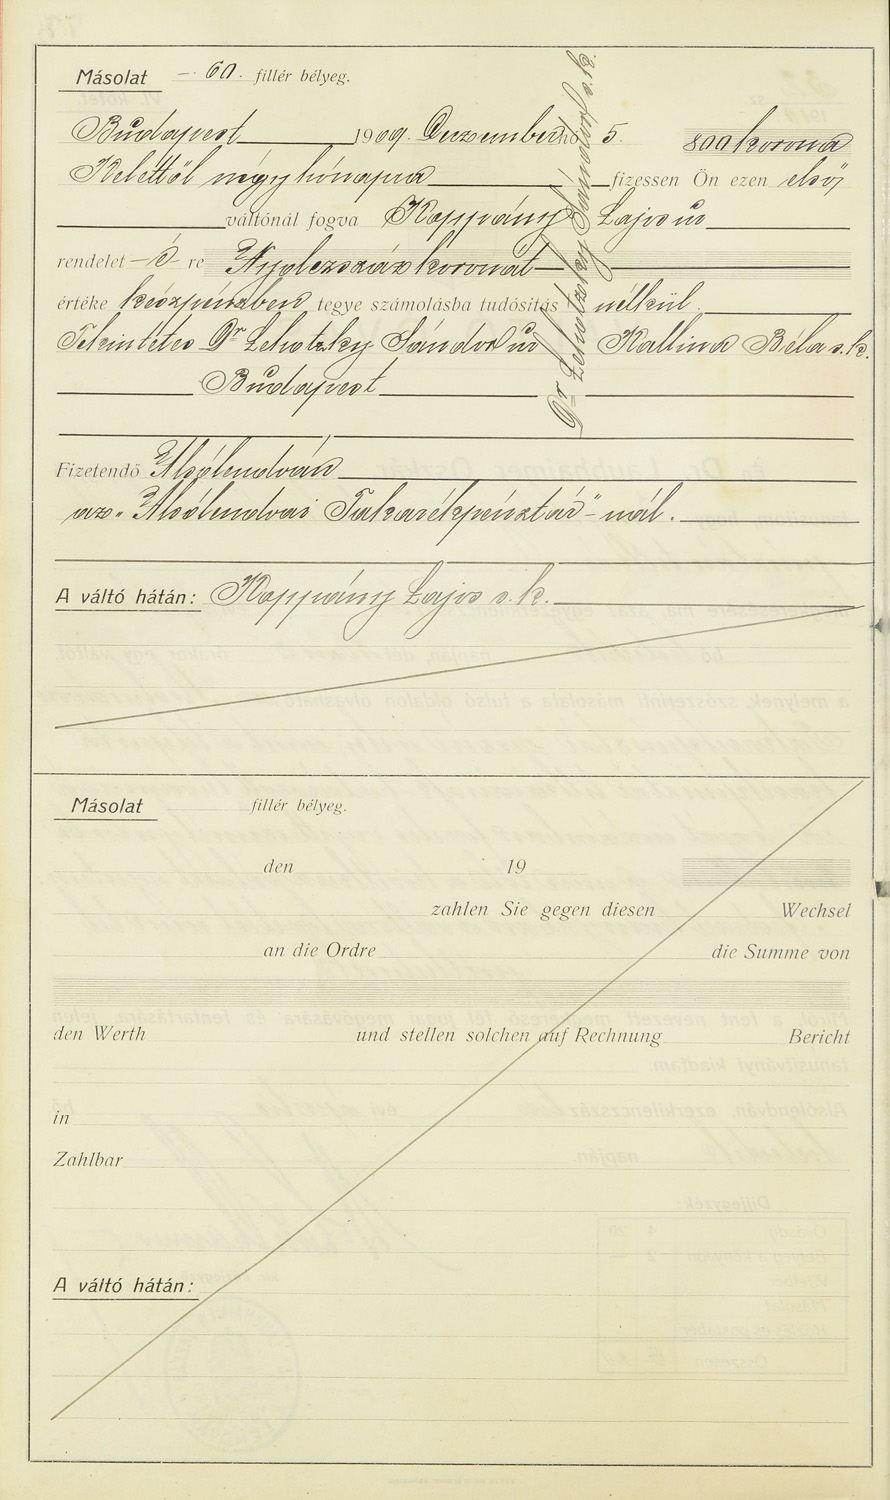 Másolat — 60. fillér bélyeg.
Budapest 1909. Dezember hó 5. 800 korona
Kelettől négy hónapra fizessen Ön ezen első
váltónál fogva Koppány Lajos úr
rendelet —é— re Nyolczszáz koronát
értéke készpénzben tegye számolásba tudósítás nélkül.
Tekintetes Dr Lehotzky Sándor úr Kallina Béla s. k.
Budapest
Dr Lehotzky Sándor s. k.
Fizetendő Alsólendván
az „Alsólendvai Takarékpénztár"-nál.
A váltó hátán: Koppány Lajos s. k.
Másolat fillér bélyeg.
den 19
zahlen Sie gegen diesen Wechsel
an die Ordre die Summe von
den Werth und stellen solchen auf Rechnung Bericht
in
Zahlbar
A váltó hátán: